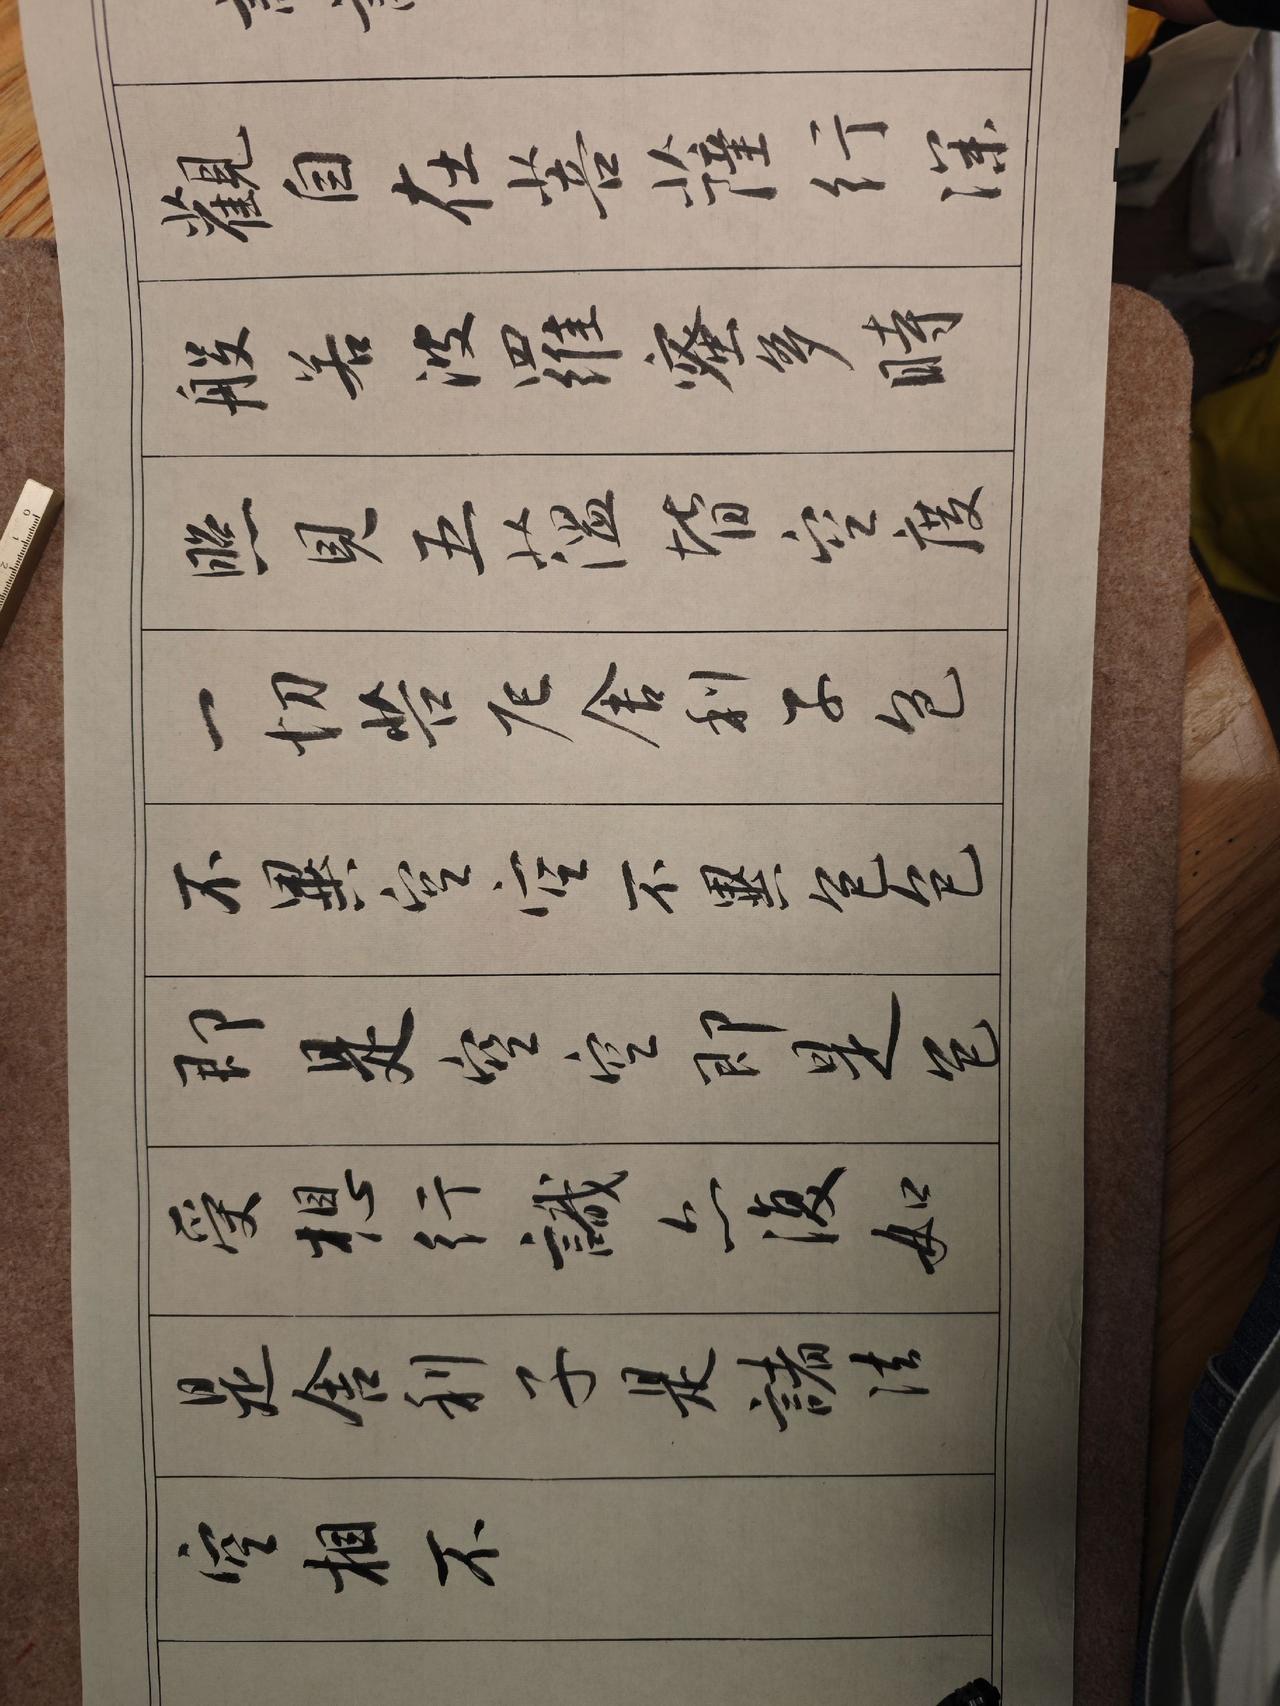 觀自在菩薩行深
般若波羅蜜多時
照見五蘊皆空度
一切苦厄舍利子色
不異空空不異色色
即是空空即是色
受想行識亦復如
是舍利子是諸法
空相不